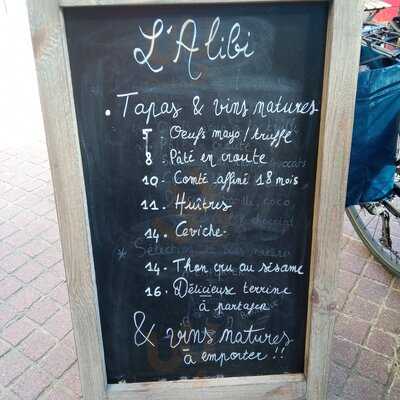 L'Alibi
. Tapas & vins natures
5 . Oeufs mayo/truffe
8 . Pâté en croute
10 . Comté affiné 18 mois
11 . Huîtres
14 . Ceviche
14 . Thon cru au sésame
16 . Délicieuse terrine
à partager
& vins natures
à emporter !!